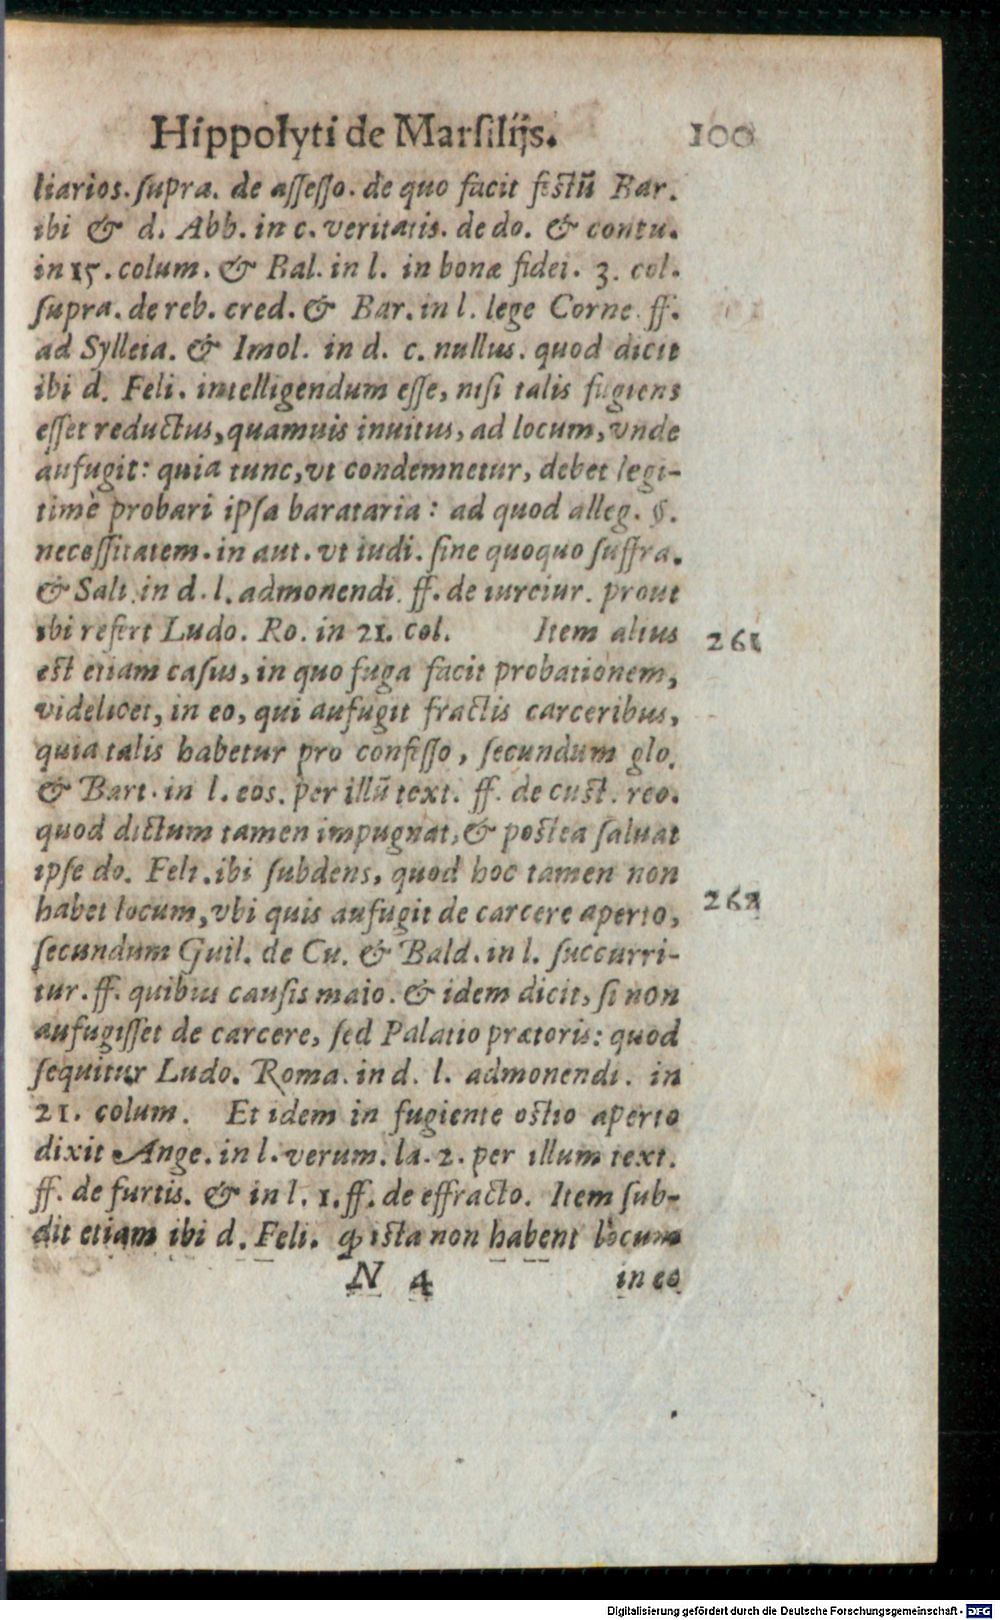 Hippolyti de Marsilijs. 100
liarios. supra. de assesso. de quo facit festũ Bar.
ibi & d. Abb. in c. veritatis. de do. & contu.
in 15. colum. & Bal. in l. in bonæ fidei. 3. col.
supra. de reb. cred. & Bar. in l. lege Corne. ff.
ad Sylleia. & Imol. in d. c. nullus. quod dicit
ibi d. Feli. intelligendum esse, nisi talis fugiens
esset reductus, quamuis inuitus, ad locum, vnde
aufugit: quia tunc, vt condemnetur, debet legi-
timè probari ipsa barataria: ad quod alleg. §.
necessitatem. in aut. vt iudi. sine quoquo suffra.
& Sali. in d. l. admonendi. ff. de iureiur. prout
ibi refert Ludo. Ro. in 21. col. Item alius 261
est etiam casus, in quo fuga facit probationem,
videlicet, in eo, qui aufugit fractis carceribus,
quia talis habetur pro confesso, secundum glo.
& Bart. in l. eos. per illũ text. ff. de cust. reo.
quod dictum tamen impugnat, & postea saluat
ipse do. Feli. ibi subdens, quod hoc tamen non
habet locum, vbi quis aufugit de carcere aperto, 262
secundum Guil. de Cu. & Bald. in l. succurri-
tur. ff. quibus causis maio. & idem dicit, si non
aufugisset de carcere, sed Palatio prætoris: quod
sequitur Ludo. Roma. in d. l. admonendi. in
21. colum. Et idem in fugiente ostio aperto
dixit Ange. in l. verum. la. 2. per illum text.
ff. de furtis. & in l. 1. ff. de effracto. Item sub-
dit etiam ibi d. Feli. ꝙ ista non habent locum
N 4 in eo
Digitalisierung gefördert durch die Deutsche Forschungsgemeinschaft - DFG